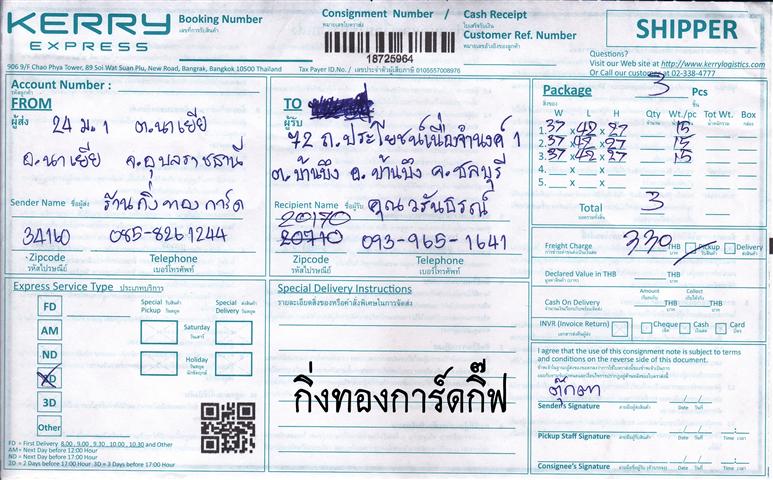 KERRY
EXPRESS
Booking Number
เลขที่การรับสินค้า
Consignment Number /
หมายเลขใบตราส่ง
Cash Receipt
ใบเสร็จรับเงิน
Customer Ref. Number
หมายเลขอ้างอิงของลูกค้า
18725964
SHIPPER
906 9/F Chao Phya Tower, 89 Soi Wat Suan Plu, New Road, Bangrak, Bangkok 10500 Thailand
Tax Payer ID.No. / เลขประจำตัวผู้เสียภาษี 0105557008976
Questions?
Visit our Web site at http://www.kerrylogistics.com
Or Call our customer at 02-338-4777
Account Number :
รหัสลูกค้า
FROM
ผู้ส่ง
24 ม.1 ต.นาเยีย
อ.นาเยีย จ.อุบลราชธานี
Sender Name ชื่อผู้ส่ง
ร้านกิ่งทองการ์ด
34160 085-8261244
Zipcode
รหัสไปรษณีย์
Telephone
เบอร์โทรศัพท์
TO
ผู้รับ
72 ถ.ประโยชน์เนื่อจำนงค์ 1
ต.บ้านบึง อ.บ้านบึง จ.ชลบุรี
Recipient Name ชื่อผู้รับ
คุณวรันธรณ์
20170
20710 093-965-1641
Zipcode
รหัสไปรษณีย์
Telephone
เบอร์โทรศัพท์
Package 3 Pcs
สิ่งของ ชิ้น
W L H Qty Wt./pc Tot Wt. Box
1. 37 x 42 x 27 15
2. 37 x 42 x 27 15
3. 37 x 42 x 27 15
4. x x
5. x x
Total 3
Freight Charge 330 THB
Pickup
รับสินค้า
Delivery
ส่งสินค้า
Declared Value in THB THB
Amount Collect
Cash On Delivery THB THB
INVR (Invoice Return)
Cheque
เช็ค
Cash
เงินสด
Card
บัตร
Express Service Type ประเภทบริการ
FD
AM
ND
2D
3D
Other
Special Pickup
รับสินค้า วันหยุด
Special Delivery
ส่งสินค้า วันหยุด
Saturday
วันเสาร์
Holiday
วันหยุด นักขัตฤกษ์
FD = First Delivery 8.00 , 9.00 , 9.30 , 10.00 , 10.30 and Other
AM = Next Day before 12:00 Hour
ND = Next Day before 17:00 Hour
2D = 2 Days before 17:00 Hour 3D = 3 Days before 17:00 Hour
Special Delivery Instructions
รายละเอียดสิ่งของหรือคำสั่งพิเศษในการจัดส่ง
กิ่งทองการ์ดกิ๊ฟ
I agree that the use of this consignment note is subject to terms
and conditions on the reverse side of this document.
ตุ๊กตา
Sender's Signature ลายมือชื่อผู้ส่ง Date วันที่
Pickup Staff Signature ลายมือชื่อผู้รับสินค้า Date วันที่ Time เวลา
Consignee's Signature Date วันที่ Time เวลา